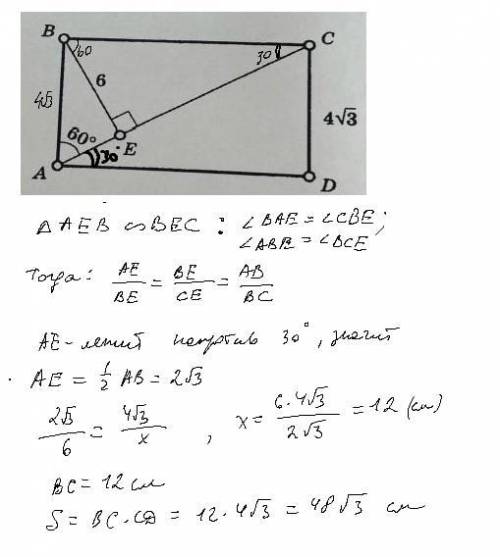 B 60 30 C
4√3 6 4√3
60° E
A 30° D
△AEB ∽ BEC : ∠BAE = ∠CBE;
∠ABE = ∠BCE
Тогда: AE/BE = BE/CE = AB/BC
AE - лежит напротив 30°, значит
AE = 1/2 AB = 2√3
2√3/6 = 4√3/x , x = 6·4√3/2√3 = 12 (см)
BC = 12 см
S = BC·CD = 12·4√3 = 48√3 см